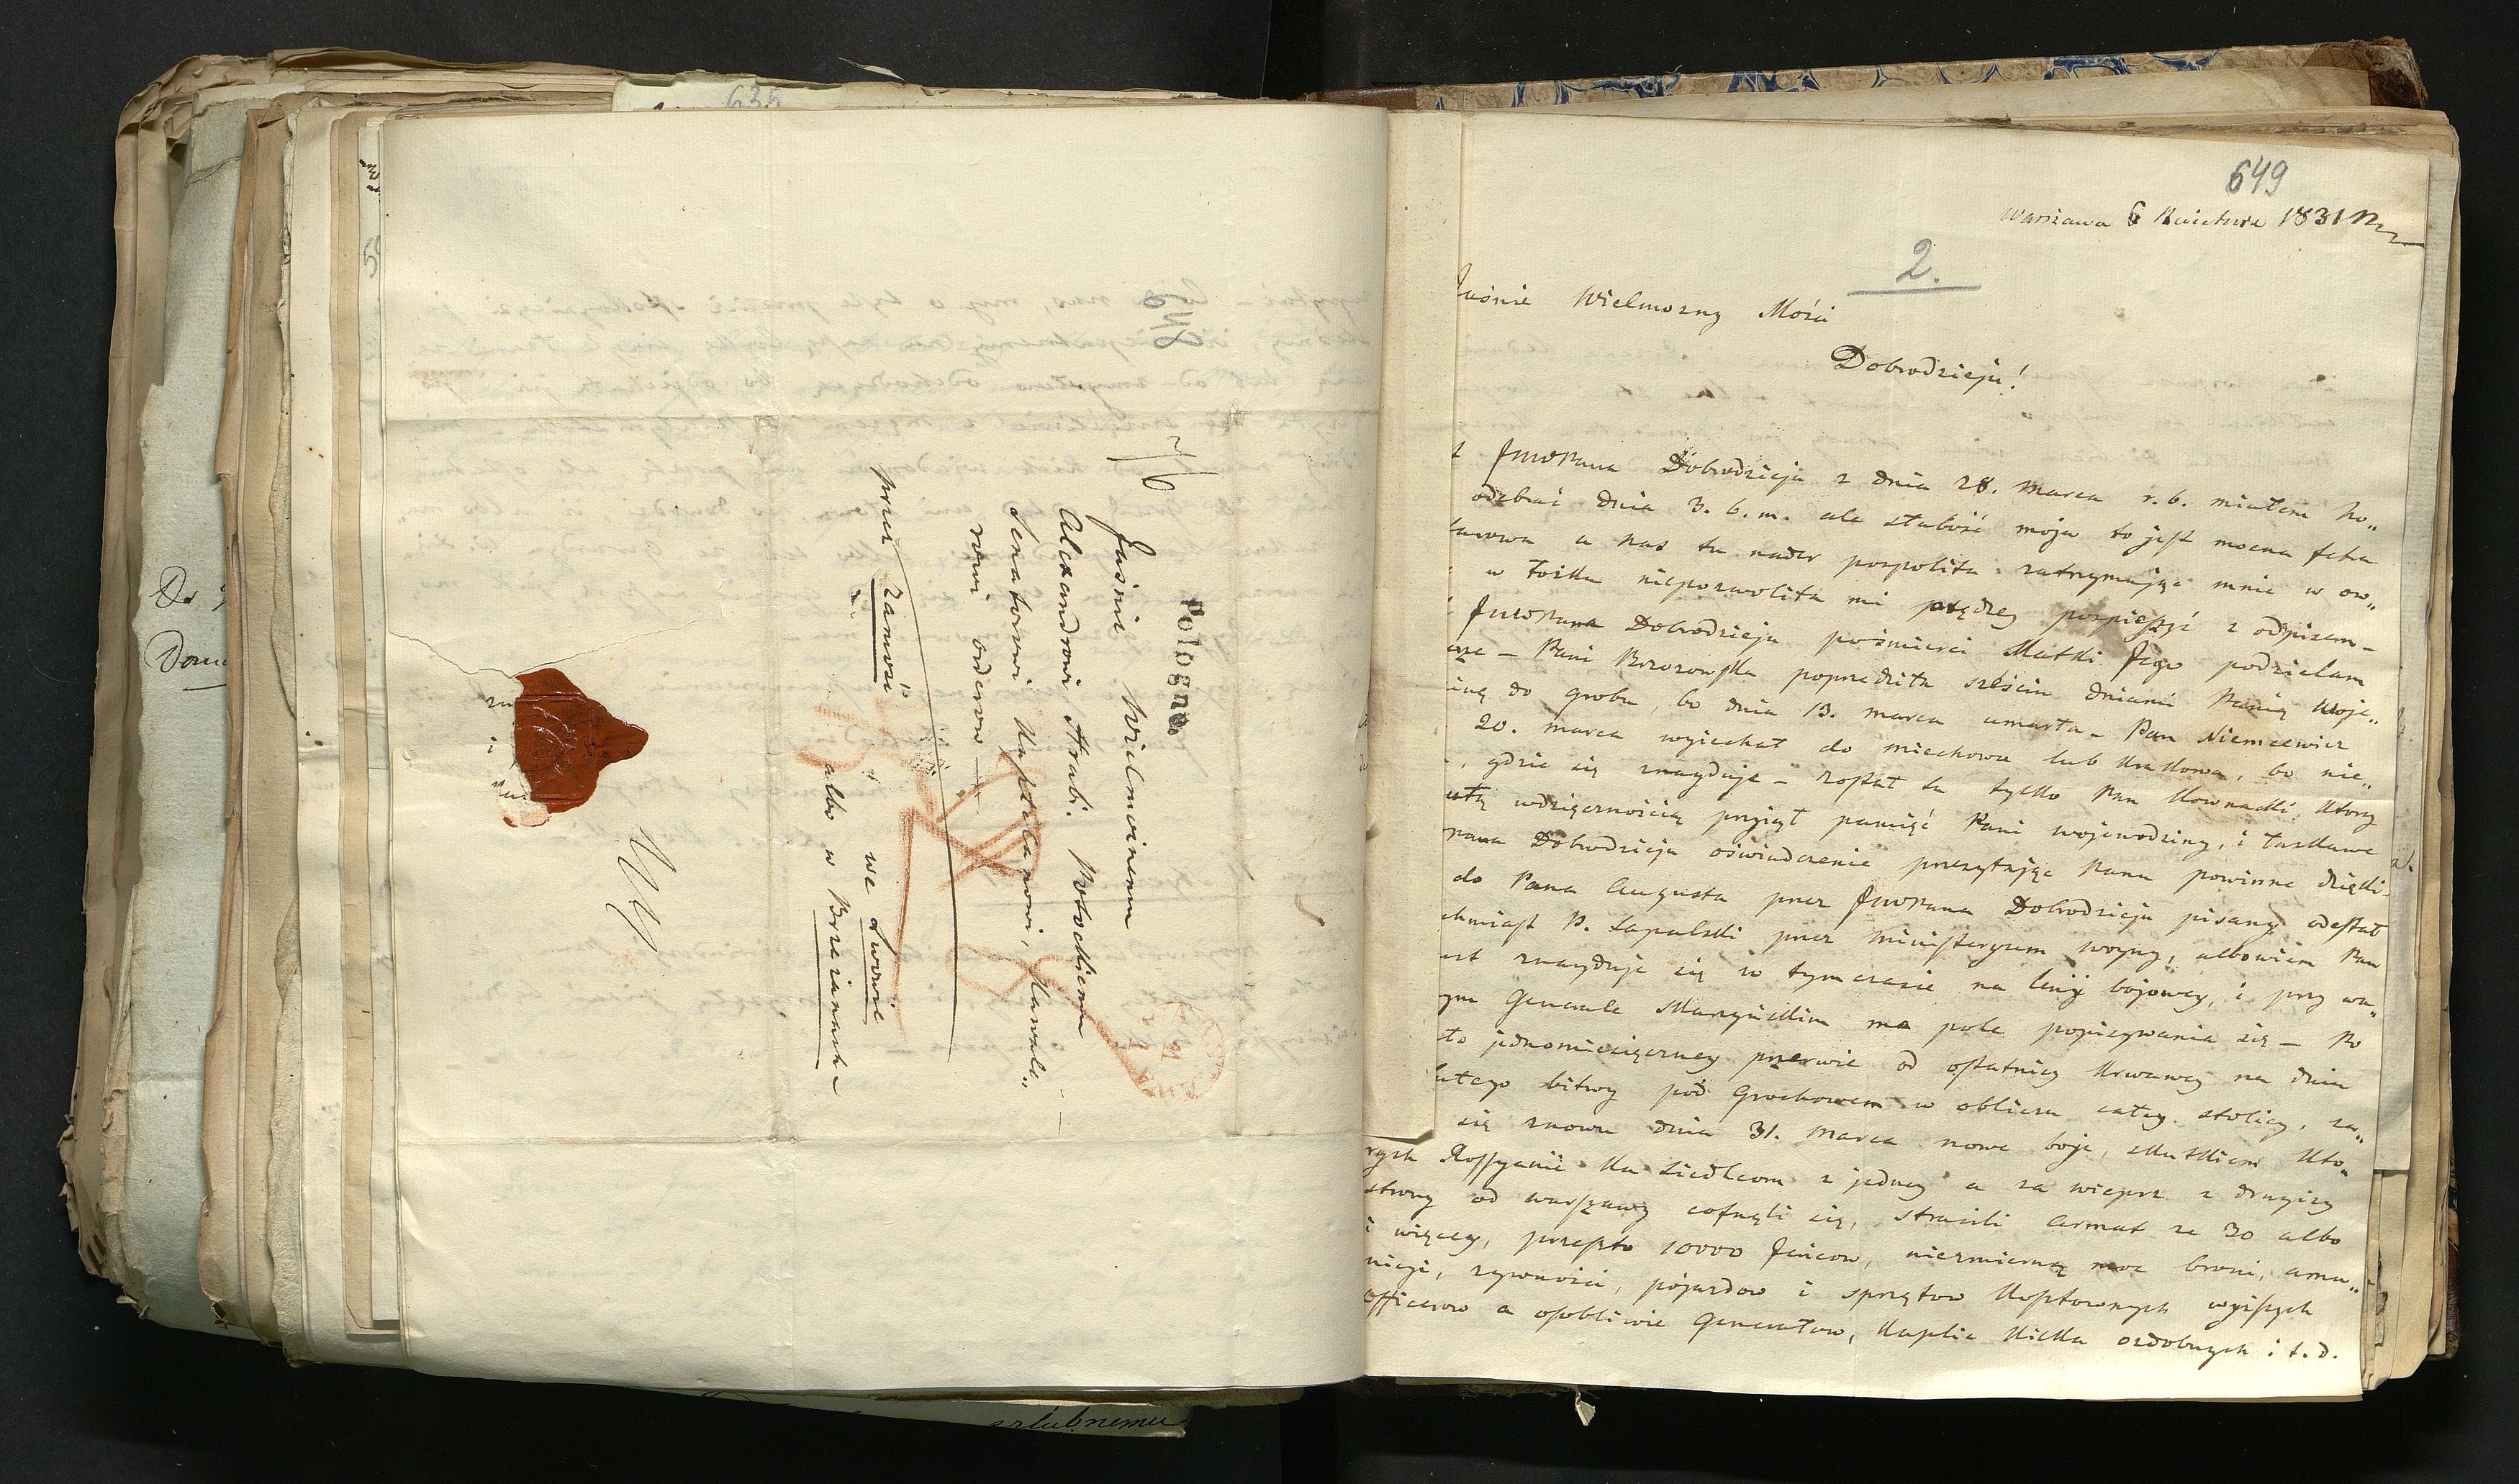 635
648
Pologne
Jaśnie Wielmożnemu
Alexandrowi Hrabi Potockiemu
Senatorowi Kasztelanowi, Kawale„
rowi orderow
przez Zamość
we Lwowie
albo w Brzezanach
649
Warszawa 6 Kwietnia 1831
2.
Jaśnie Wielmozny Mości
Dobrodzieju!
JWWPana Dobrodzieja z dnia 28. Marca r. b. miałem ho„
odebrać dnia 3. b. m. ale słabość moja to jest mocna febra
a nas tu nader pospolita zatrzymując mnie w
w łożku niepozwoliła mi prędzey pospieszyć z odpisem –
JWWPana Dobrodzieja po śmierci Matki Jego podzielam
– Pani Brzozowska poprzedziła sześcią dniami Panią Woje„
do grobu, bo dnia 13. marca umarła – Pan Niemcewicz
20. marca wyiechał do Miechowa lub Krakowa, bo nie„
, gdzie się znayduje – został tu tylko Pan Kownacki, ktory
wdzięcznością przyiął pamięć Pani Wojewodziny, i łaskawe
Pana Dobrodzieja oświadczenie przesyłając Panu powinne dzięki.
do Pana Augusta przez JWWPana Dobrodzieja pisany odesłał
P. Łapulski przez Ministeryum woyny, albowiem Pan
znayduje się w tym czasie na linij bojowey, i przy wa„
Generale Skarzyńskim ma pole popisywania się – Po
jednomiesięczney przerwie od ostatniey krwawey na dniu
lutego bitwy pod Grochowem w obliczu całey stolicy, za„
się znowu dnia 31. Marca nowe boje, skutkiem kto„
rych Rossyanie ku Siedlcom z jedney a za wieprz z drugiey
strony od Warszawy cofnęli się, stracili Armat ze 30 albo
i więcey, przeszło 10000 Jeńcow, niezmierną moc broni, amu„
nicyi, zywności, pojazdow i sprzętow kosztownych wyższych
Officerow a osobliwie Generałow, kaplic kilka ozdobnych i t. d.
szlubnemu